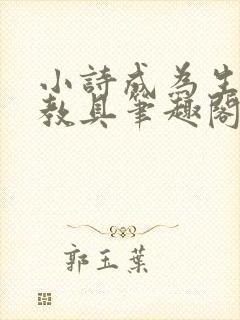 小詩成為生
教具筆趣閣
郭玉葉